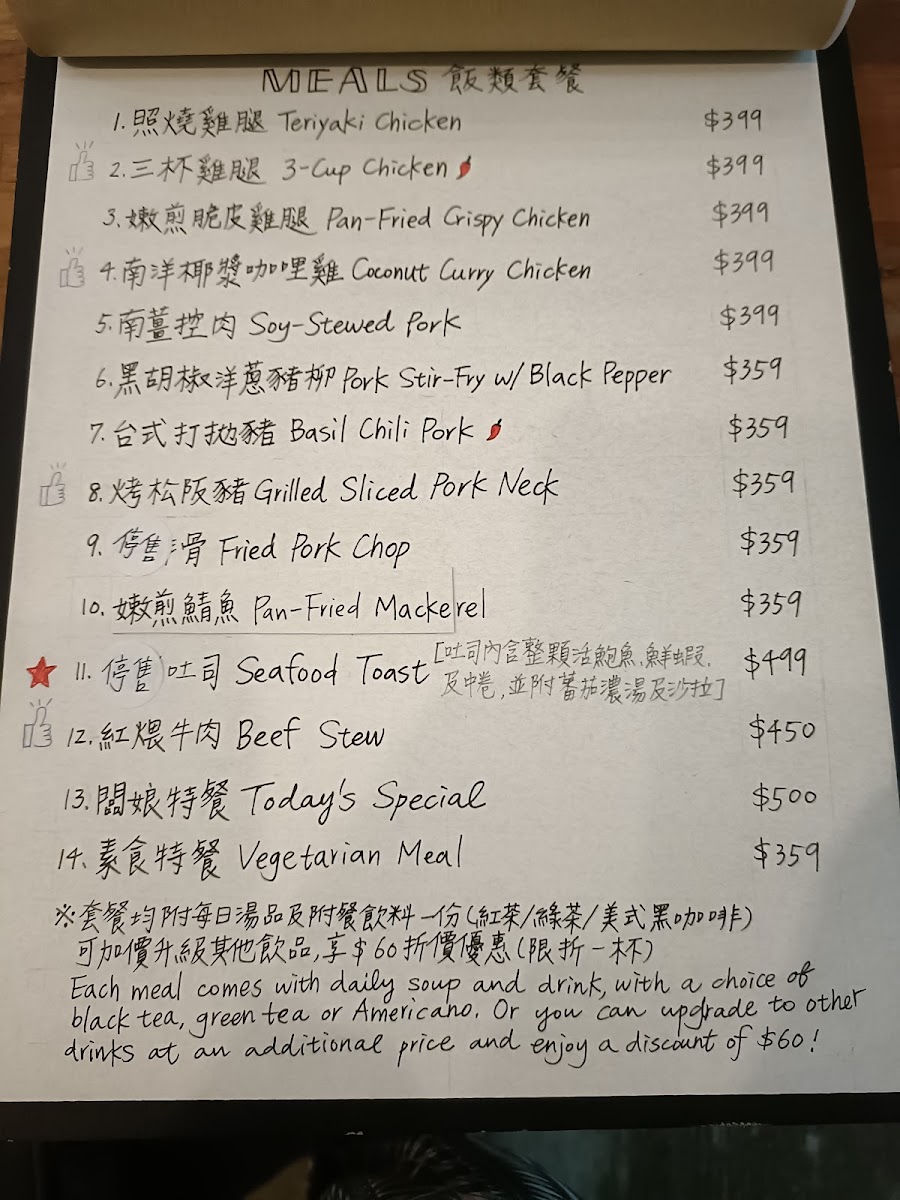 MEALS 飯類套餐
1. 照燒雞腿 Teriyaki Chicken $399
2. 三杯雞腿 3-Cup Chicken $399
3. 嫩煎脆皮雞腿 Pan-Fried Crispy Chicken $399
4. 南洋椰漿咖哩雞 Coconut Curry Chicken $399
5. 南薑控肉 Soy-Stewed Pork $399
6. 黑胡椒洋蔥豬柳 Pork Stir-Fry w/ Black Pepper $359
7. 台式打拋豬 Basil Chili Pork $359
8. 烤松阪豬 Grilled Sliced Pork Neck $359
9. 停售 滑 Fried Pork Chop $359
10. 嫩煎鯖魚 Pan-Fried Mackerel $359
11. 停售 吐司 Seafood Toast [吐司內含整顆活鮑魚、鮮蝦、 $499
及中卷, 並附蕃茄濃湯及沙拉]
12. 紅煨牛肉 Beef Stew $450
13. 闆娘特餐 Today's Special $500
14. 素食特餐 Vegetarian Meal $359
※套餐均附每日湯品及附餐飲料一份(紅茶/綠茶/美式黑咖啡)
可加價升級其他飲品,享$60折價優惠(限折一杯)
Each meal comes with daily soup and drink, with a choice of
black tea, green tea or Americano. Or you can upgrade to other
drinks at an additional price and enjoy a discount of $60!